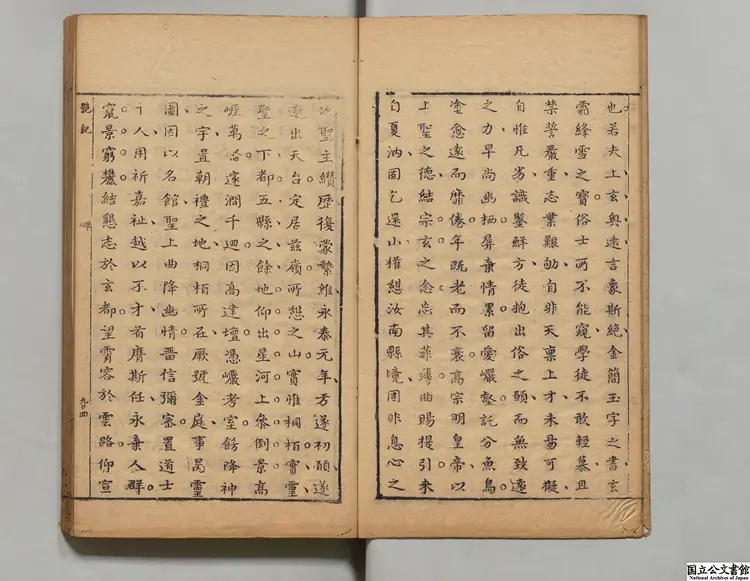 也若夫上玄奥遠言象斯絶金簡玉字之書玄
霜絳雪之寶俗士所不能窺學徒不敢輕慕且
禁誓嚴重志業艱劬自非天稟上才未易可擬
自惟凡劣識鑒鮮方徒抱出俗之願而無致遠
之力早尚幽栖屏棄情累留愛巖壑託分魚鳥
塗愈遠而靡倦年既老而不衰高宗明皇帝以
上聖之德結宗玄之念忘其菲薄曲賜提引来
自夏汭固乞還小權憇汝南縣境固非息心之
地聖主纘歴復蒙縶維永泰元年方遂初願遂
遠出天台定居茲嶺所憇之山實惟桐栢實靈
聖之下都五縣之餘地仰出星河上參倒景高
崖萬沓邃澗千廻因高建壇憑巖考室餝降神
之宇置朝禮之地桐栢所在厥號金庭事昺靈
圖因以名館聖上曲降幽情畱信彌密置道士
十人用祈嘉祉越以不才首膺斯任永棄人群
竄景窮麓結懇志於玄都望霄容於雲路仰宣
国立公文書館
National Archives of Japan